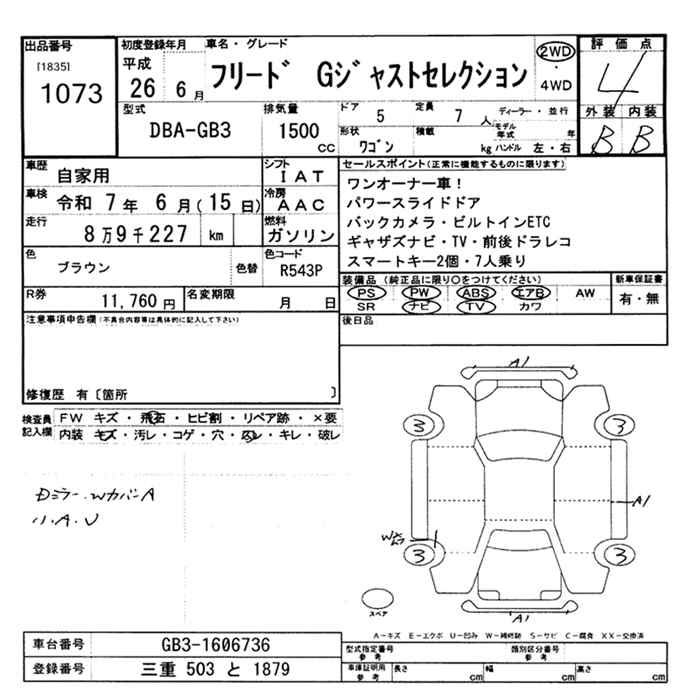 出品番号
[1835]
1073
初度登録年月
平成
26 6 月
車名・グレード
フリード Gジャストセレクション
2WD
・
4WD
評価点
4
外装 内装
B B
型式
DBA-GB3
排気量
1500 cc
ドア 5
定員 7 人
形状 ワゴン
積載 kg
ディーラー・並行
モデル年式 年
ハンドル 左・右
車歴
自家用
シフト
IAT
車検
令和 7 年 6 月 ( 15 日)
冷房
AAC
走行
8 万 9 千 227 km
燃料
ガソリン
色
ブラウン
色替
色コード
R543P
R券
11,760 円
名変期限
月 日
セールスポイント(正常に機能するものに限ります)
ワンオーナー車!
パワースライドドア
バックカメラ・ビルトインETC
ギャザズナビ・TV・前後ドラレコ
スマートキー2個・7人乗り
装備品 (純正品に限り○をつけてください)
PS PW ABS エアB AW
SR ナビ TV カワ
新車保証書
有・無
後日品
注意事項申告欄(不具合内容等は具体的に記入して下さい)
修復歴 有〔箇所 〕
検査員
記入欄
FW キズ・飛石・ヒビ割・リペア跡・×要
内装 キズ・汚レ・コゲ・穴・凹レ・キレ・破レ
Dミラー.Wカバー A
リ.A.U
A1
3 3
A1
3 3
A1
スペア
A-キズ E-エクボ U-凹み W-補修跡 S-サビ C-腐食 XX-交換済
車台番号
GB3-1606736
登録番号
三重 503 と 1879
型式指定番号
参考
類別区分番号
参考
車庫証明用
参考
長さ cm
幅 cm
高さ cm